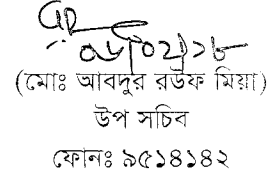 ০৬/০২/১৮
(মোঃ আবদুর রউফ মিয়া)
উপ সচিব
ফোনঃ ৯৫১৪১৪২